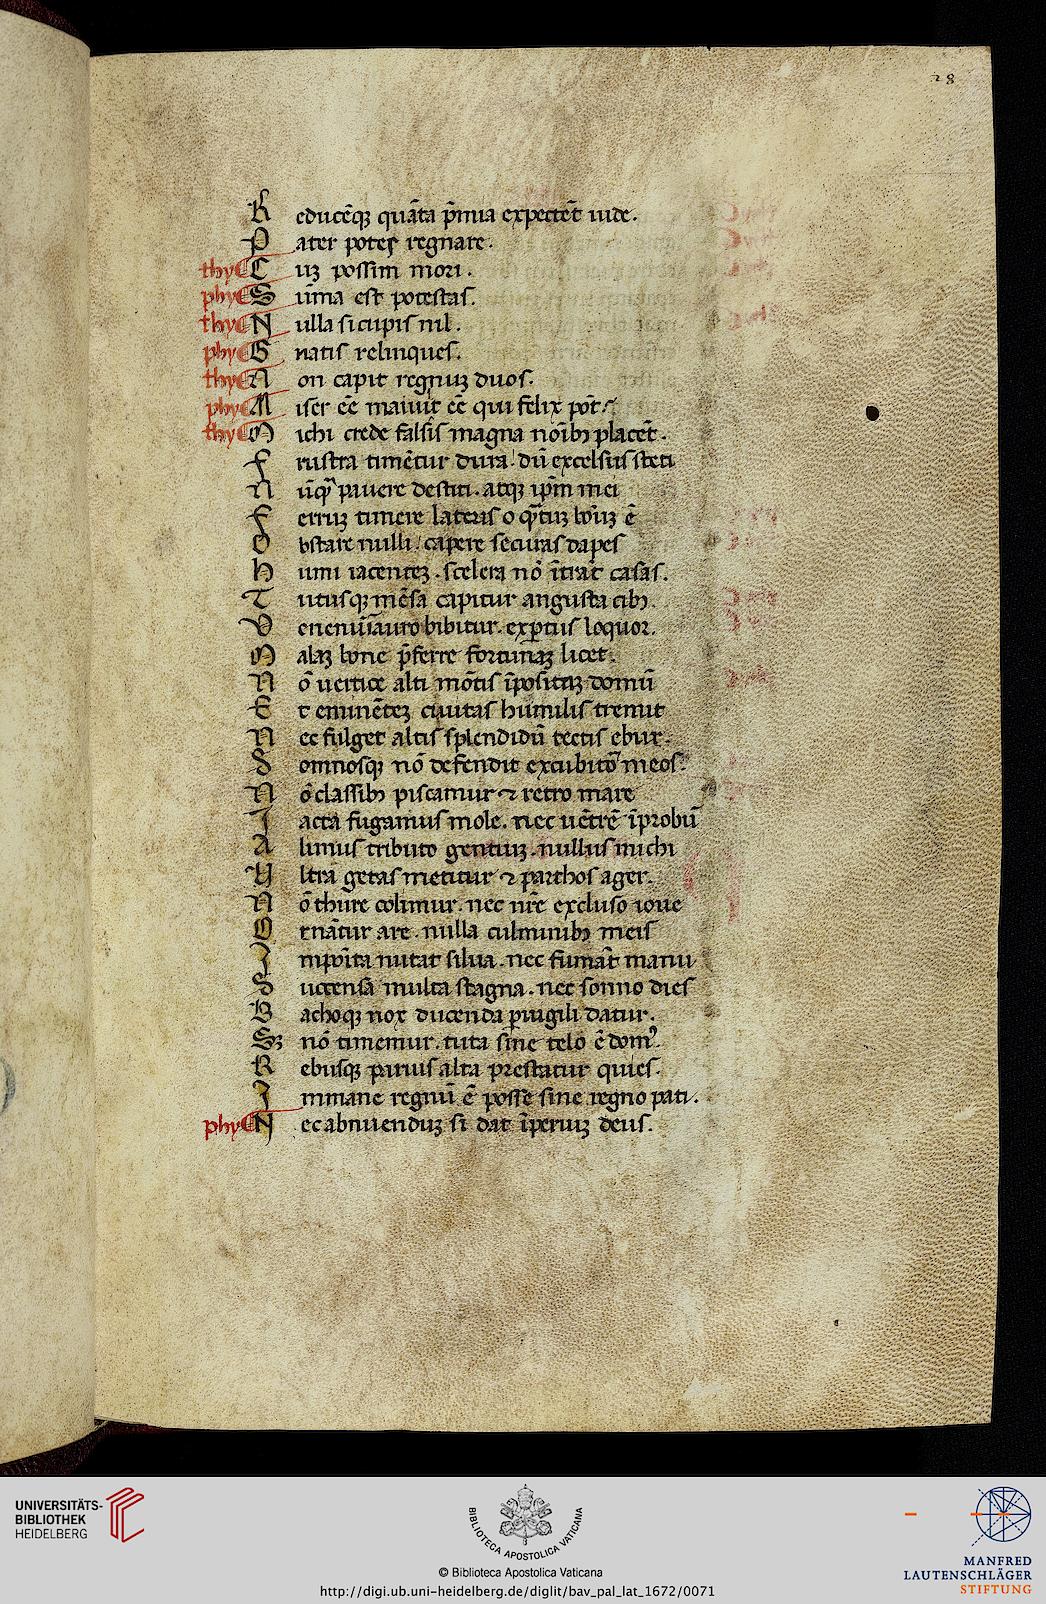 28
R educẽqꝫ quãta p̃mia expectẽt uide.
P ater potes regnare.
thy C uꝫ possim mori.
phy S ũma est potestas.
thy N ulla si cupis nil.
phy G natis relinques.
thy N on capit regnuꝫ duos.
phy M iser ẽe mauult ẽe qui felix põt.
thy M ichi crede falsis magna noĩbꝫ placẽt.
F rustra timẽtur dura. dũ excelsus steti
N ũqᷓ pauere destiti. atqꝫ ip̃m mei
F erruꝫ timere lateris o qᷓtuꝫ bonuꝫ ẽ
O bstare nulli. capere securas dapes
H umi iacenteꝫ. scelera nõ ĩtrãt casas.
T utusqꝫ mẽsa capitur angusta cibꝫ.
V enenũ ĩ auro bibitur. exꝑtus loquor.
M alaꝫ bone p̃ferre fortunaꝫ licet.
N õ uertice alti mõtis ĩpositaꝫ domũ
E t eminẽteꝫ ciuitas humilis tremit
N ec fulget altis splendidũ tectis ebur.
S omnosqꝫ nõ defendit excubitor meos.
N õ classibꝫ piscamur ⁊ retro mare
I acta fugamus mole. nec uẽtrẽ ĩprobũ
A limus tributo gentiuꝫ. nullus michi
U ltra getas metitur ⁊ parthos ager.
N õ thure colimur. nec nr̃e excluso ioue
O rnãtur are. nulla culminibꝫ meis
I mpoĩta nutat silua. nec fumãt manu
S uccensa multa stagna. nec sonno dies
B achoqꝫ nox ducenda ꝑuigili datur.
Sꝫ nõ timemur. tuta sine telo ẽ domꝰ.
R ebusqꝫ paruis alta prestatur quies.
I mmane regnũ ẽ posse sine regno pati.
phy N ec abnuenduꝫ si dat ĩperiuꝫ deus.
UNIVERSITÄTS-
BIBLIOTHEK
HEIDELBERG
BIBLIOTECA APOSTOLICA VATICANA
© Biblioteca Apostolica Vaticana
http://digi.ub.uni-heidelberg.de/diglit/bav_pal_lat_1672/0071
MANFRED
LAUTENSCHLÄGER
STIFTUNG